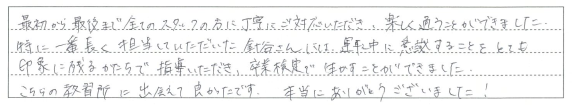 最初から最後まで全てのスタッフの方に丁寧にご対応いただき、楽しく通うことができました。
特に一番長く担当していただいた針谷さんには、運転中に意識することをとても
印象に残るかたちで指導いただき、卒業検定で生かすことができました。
こちらの教習所に出会えて良かったです。本当にありがとうございました！